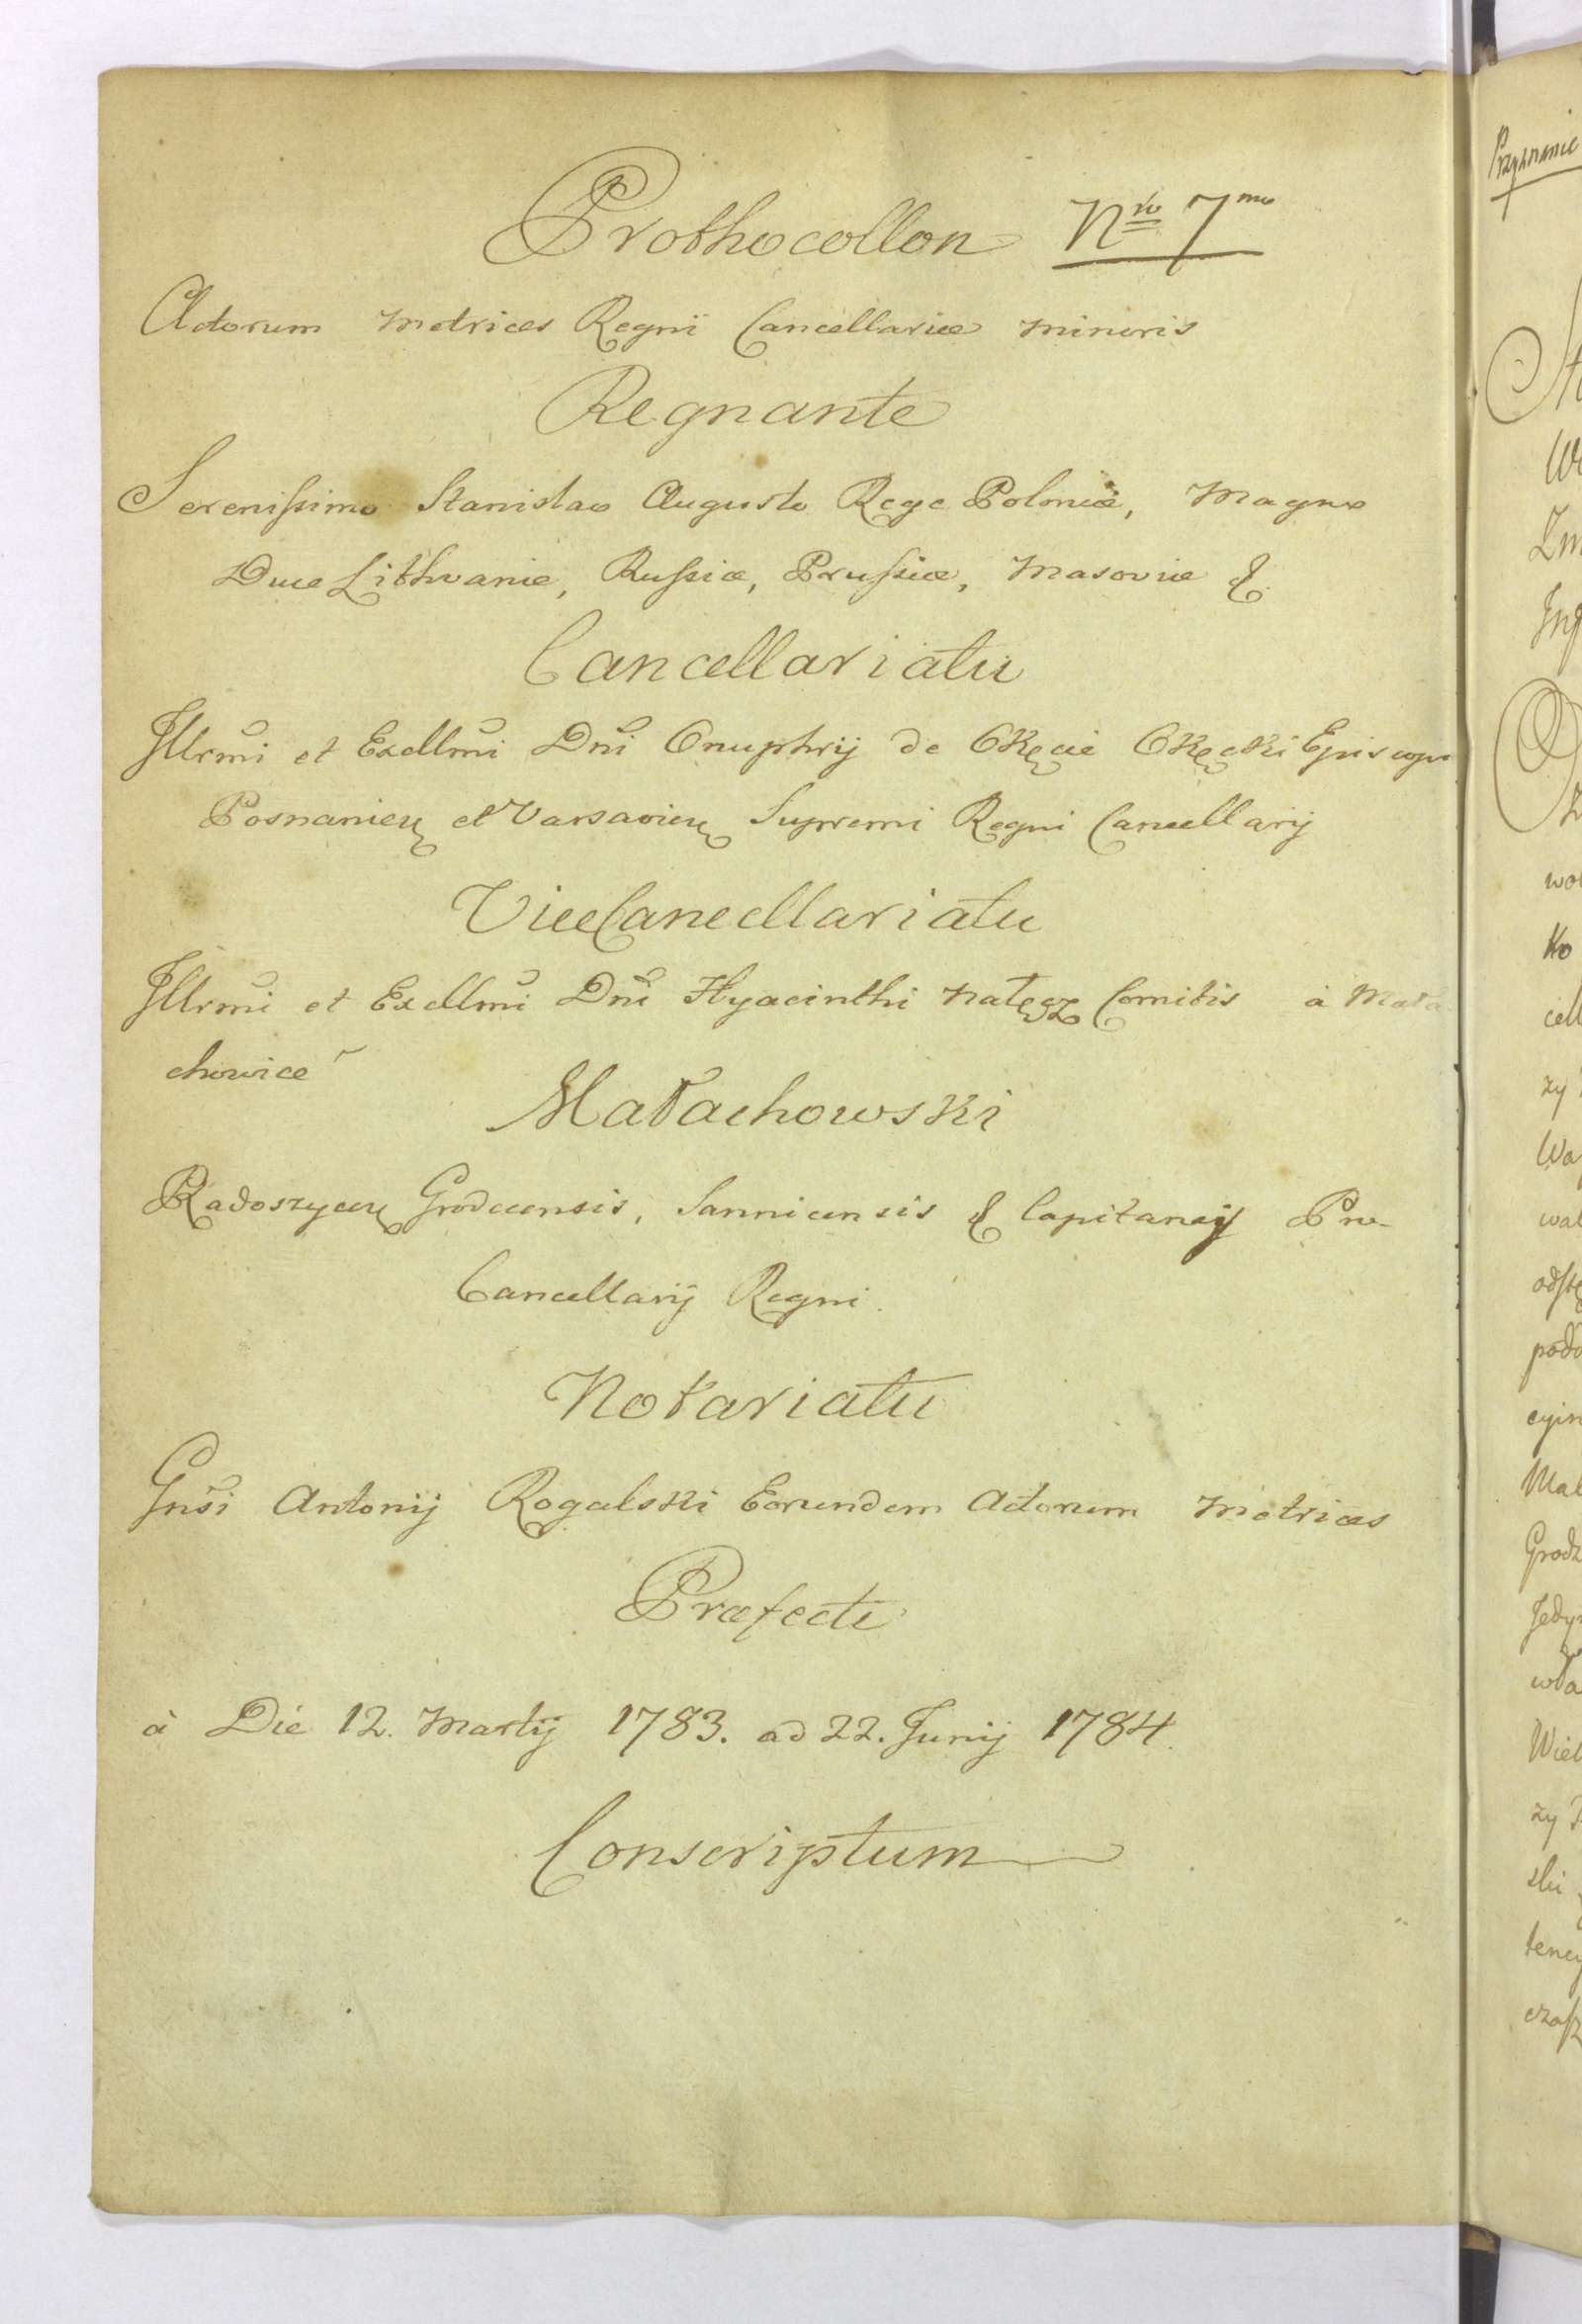 Prothocollon Nro 7mo
Actorum Metrices Regni Cancellariæ Minoris
Regnante
Serenissimo Stanislao Augusto Rege Poloniæ, Magno
Duce Lithvaniæ, Russiæ, Prussiæ, Masoviæ &
Cancellariatu
Illrmi et Excellmi Dni Onuphrij de Okęcie Okęcki Episcopi
Posnanien et Varsavien Supremi Regni Cancellarij
ViceCancellariatu
Illrmi et Excellmi Dni Hyacinthi Nałęcz Comitis à Mała
chowice
Małachowski
Radoszycen Grodecensis, Sannicensis & Capitanej Pro-
Cancellarij Regni
Notariatu
Gnsi Antonij Rogalski Eorundem Actorum Metrices
Præfecti
à Die 12. Martij 1783. ad 22. Junij 1784.
Conscriptum